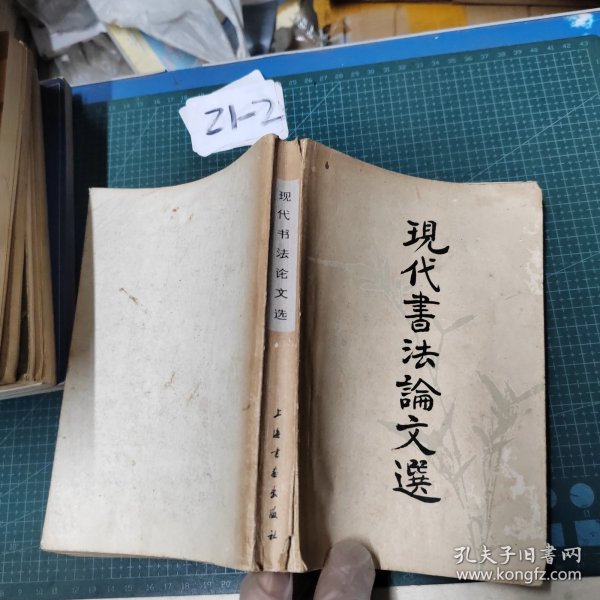 Z1-2
现代书法论文选
上海书画出版社
現代書法論文選
孔夫子旧書网
www.kongfz.com